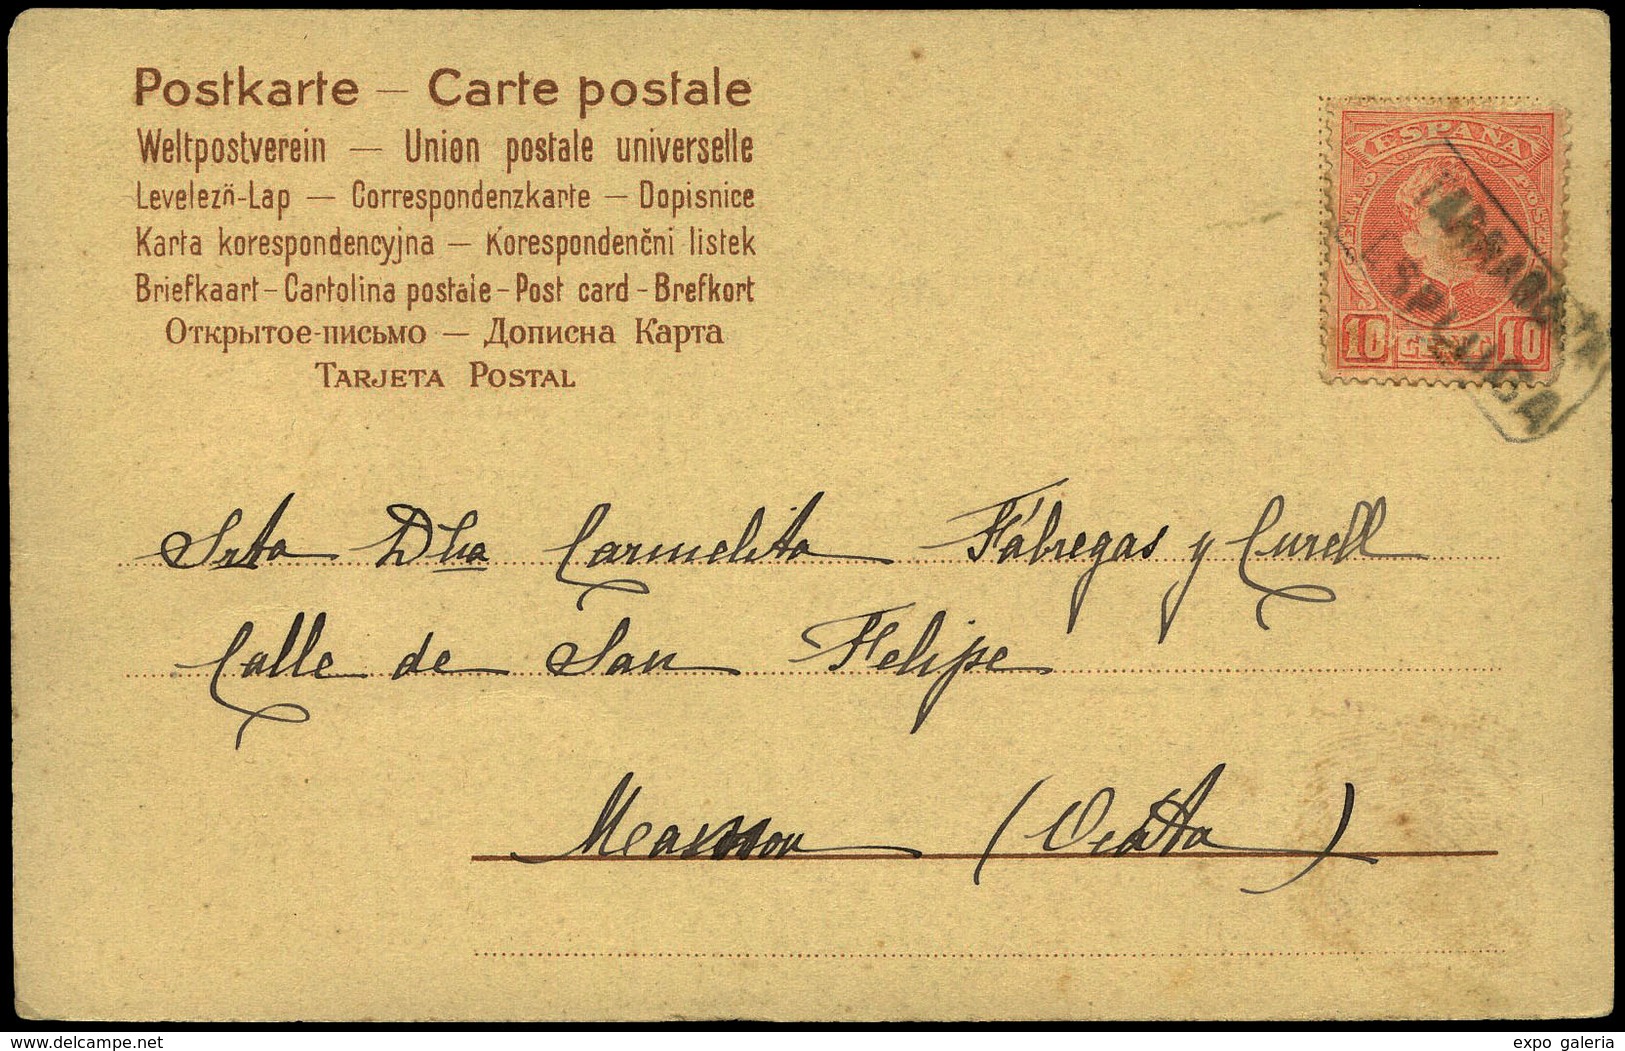 Postkarte – Carte postale
Weltpostverein – Union postale universelle
Levelezõ-Lap – Correspondenzkarte – Dopisnice
Karta korespondencyjna – Korespondenčni listek
Briefkaart – Cartolina postale – Post card – Brefkort
Открытое-письмо – Дописна Карта
TARJETA POSTAL
ESPAÑA
10 CENT. 10
TARRAGONA
ESPLUGA
Srta Dña Carmelita Fábregas y Curell
Calle de San Felipe
(Ocata)
www.delcampe.net
expo galeria